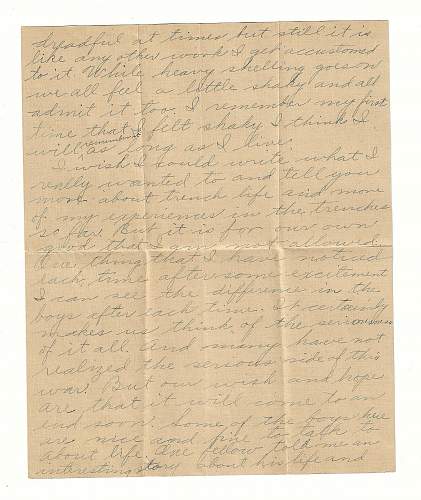 dreadful at times but still it is
like any other work I get accustomed
to it. While heavy shelling goes on
we all feel a little shaky and all
admit it too. I remember my first
time that I felt shaky I think I
will remember it as long as I live.
I wish I could write what I
really wanted to and tell you
more about trench life and more
of my experiences in the trenches
so far. But it is for our own
good that I am not allowed.
One thing that I have noticed
each time after some excitement
I can see the difference in the
boys after each time. It certainly
makes us think of the seriousness
of it all. And many have not
realized the serious side of this
war. But our wish and hope
are, that it will come to an
end soon. Some of the boys here
are nice and fine to talk to
about life. One fellow told me an
interesting story about his life and